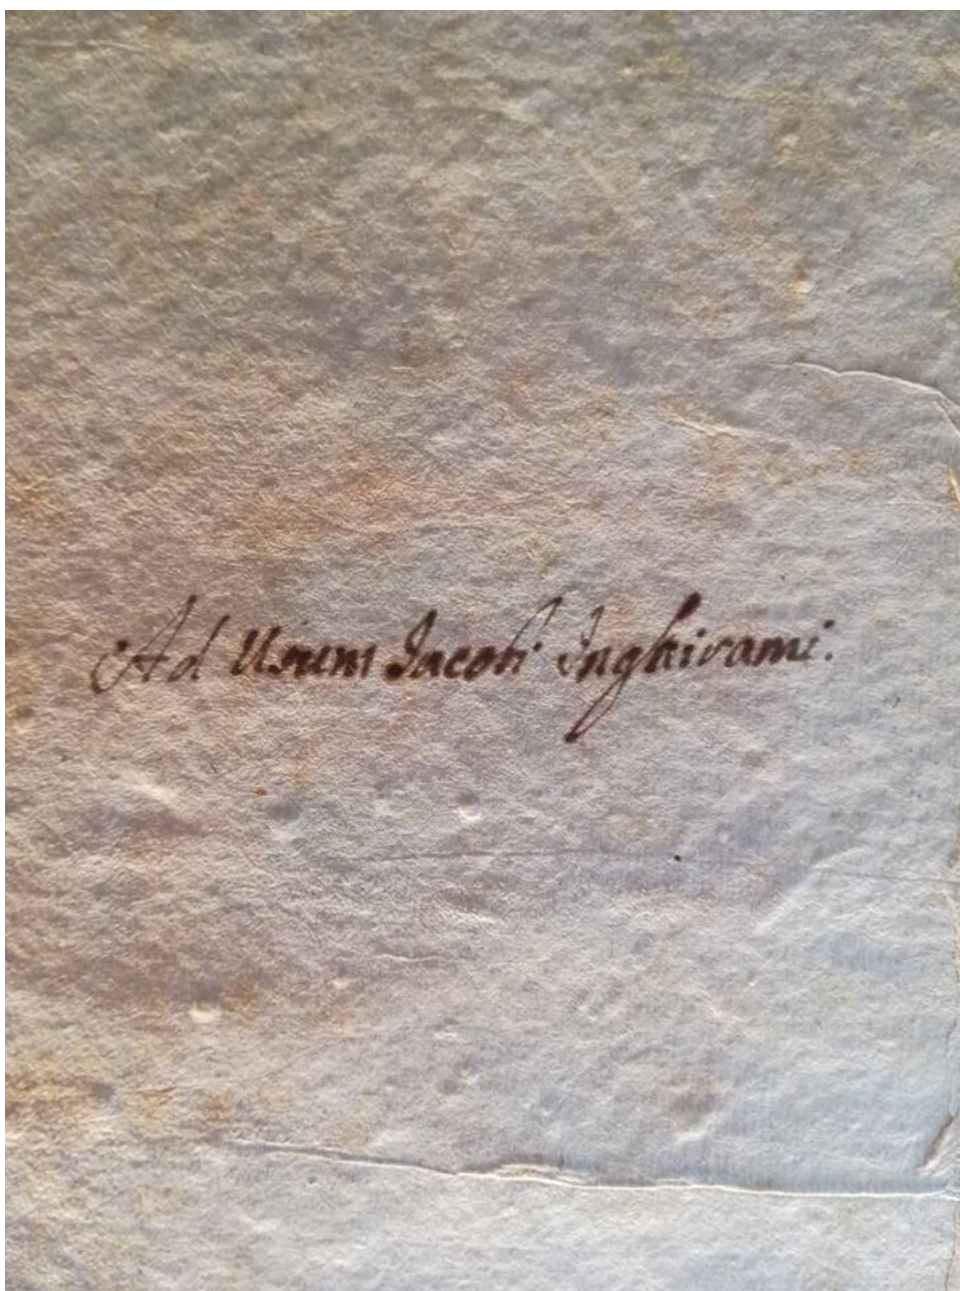 Ad Usum Jacobi Inghirami.